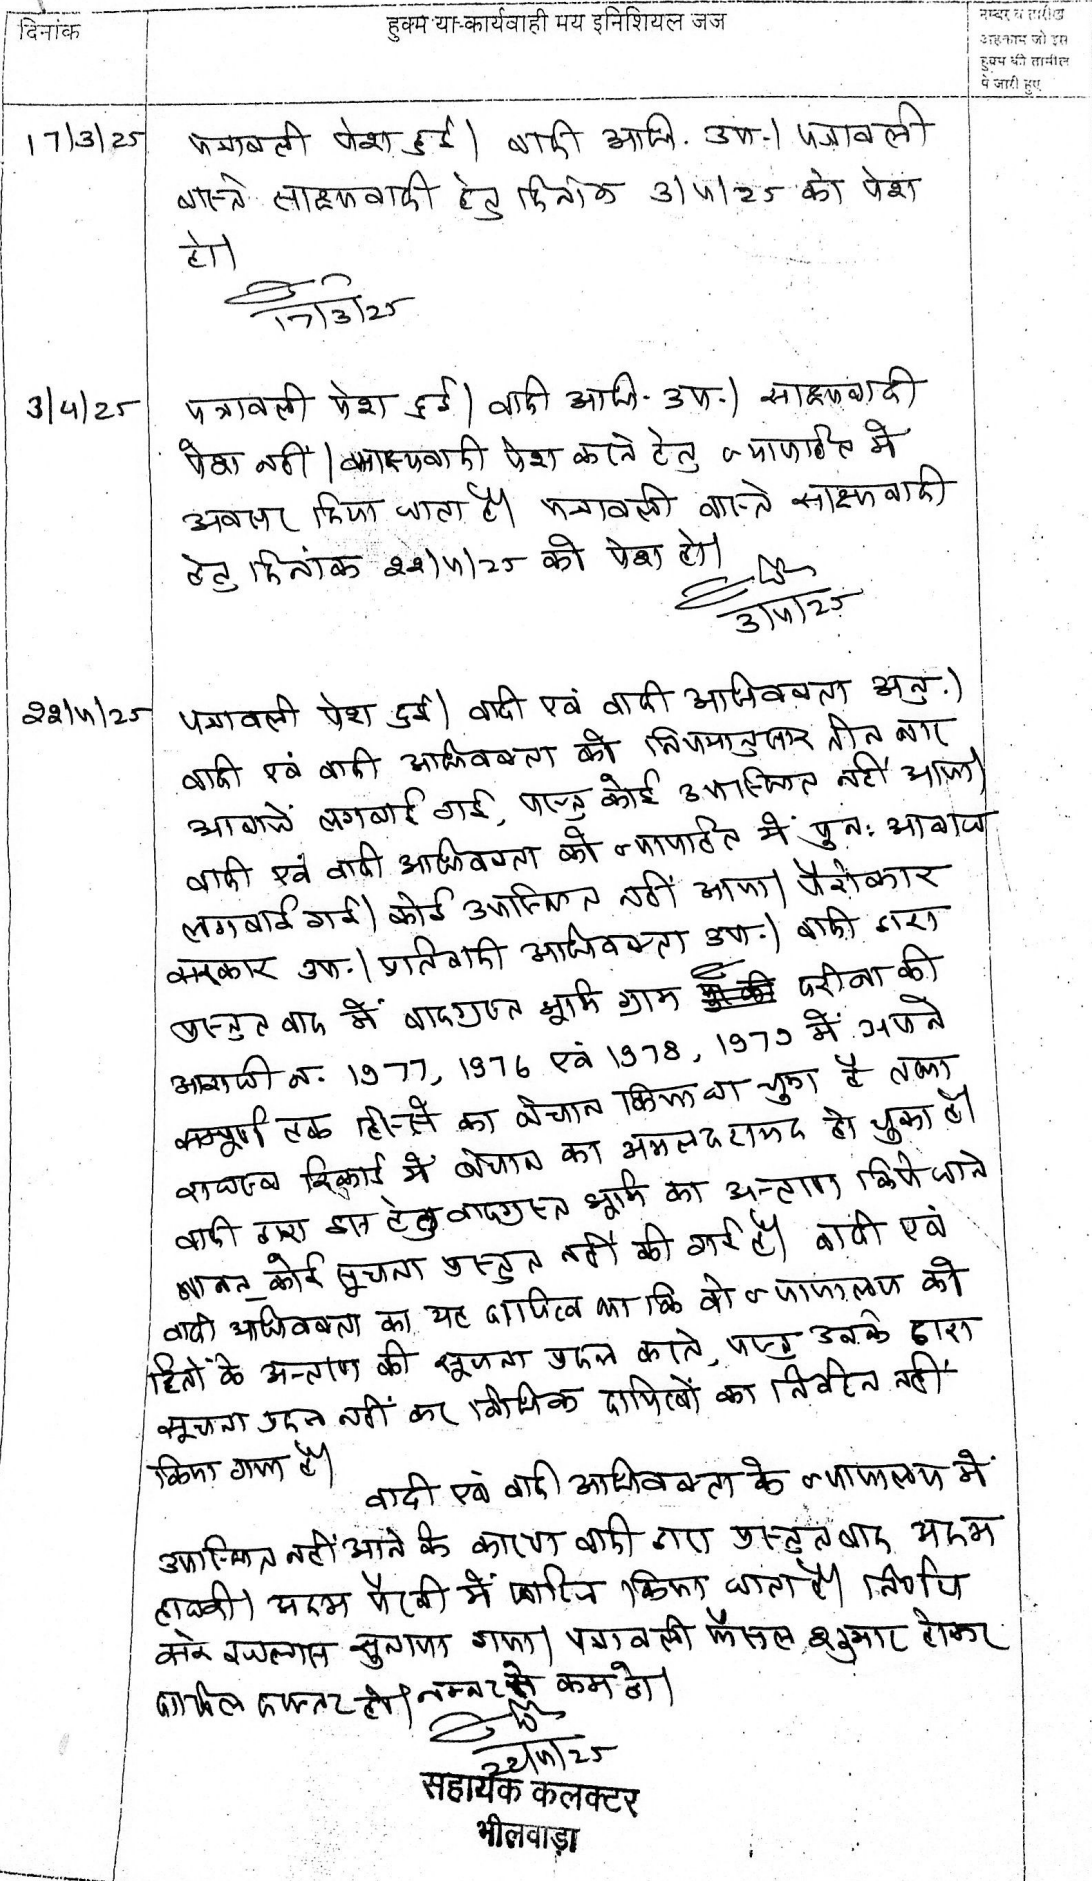 दिनांक
हुक्म या कार्यवाही मय इनिशियल जज
नम्बर व तारीख
अहकाम जो इस
हुक्म की तामील
पे जारी हुए
17/3/25
पत्रावली पेश हुई। वादी अधि. उप.। पत्रावली
वास्ते साक्ष्यवादी हेतु दिनांक 3/4/25 को पेश
हो।
17/3/25
3/4/25
पत्रावली पेश हुई। वादी अधि. उप.। साक्ष्यवादी
पेश नहीं। साक्ष्यवादी पेश करने हेतु न्यायहित में
अवसर दिया जाता है। पत्रावली वास्ते साक्ष्यवादी
हेतु दिनांक 22/4/25 को पेश हो।
3/4/25
22/4/25
पत्रावली पेश हुई। वादी एवं वादी अधिवक्ता अनु.।
वादी एवं वादी अधिवक्ता को नियमानुसार तीन बार
आवाजें लगवाई गई, परन्तु कोई उपस्थित नहीं आया।
वादी एवं वादी अधिवक्ता को न्यायहित में पुनः आवाज
लगवाई गई। कोई उपस्थित नहीं आया। पैरोकार
सरकार उप.। प्रतिवादी अधिवक्ता उप.। वादी द्वारा
प्रस्तुत वाद में वादग्रस्त भूमि ग्राम परीबा की
आराजी न. 1977, 1976 एवं 1978, 1979 में अपने
सम्पूर्ण हक हिस्से का बेचान किया जा चुका है तथा
राजस्व रिकार्ड में बेचान का अमलदरामद हो चुका है।
वादी द्वारा हेतु वादग्रस्त भूमि का अन्तरण किये जाने
बाबत कोई सूचना प्रस्तुत नहीं की गई है। वादी एवं
वादी अधिवक्ता का यह दायित्व था कि वो न्यायालय को
हितों के अन्तरण की सूचना प्रदान करते, परन्तु उनके द्वारा
सूचना प्रदान नहीं कर विधिक दायित्वों का निर्वहन नहीं
किया गया है।
वादी एवं वादी अधिवक्ता के न्यायालय में
उपस्थित नहीं आने के कारण वादी द्वारा प्रस्तुत वाद अदम
हाजरी। अदम पैरवी में खारिज किया जाता है। निर्णय
सरे इजलास सुनाया गया। पत्रावली फैसल शुमार होकर
दाखिल दफ्तर हो। नम्बर से कम हो।
22/4/25
सहायक कलक्टर
भीलवाड़ा